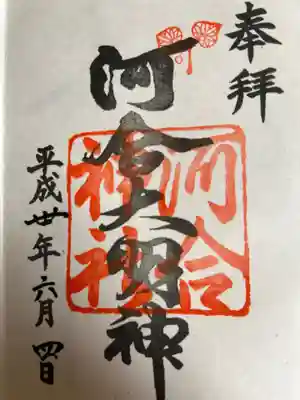 奉拝
河合大明神
河合
神社
平成卅年六月四日